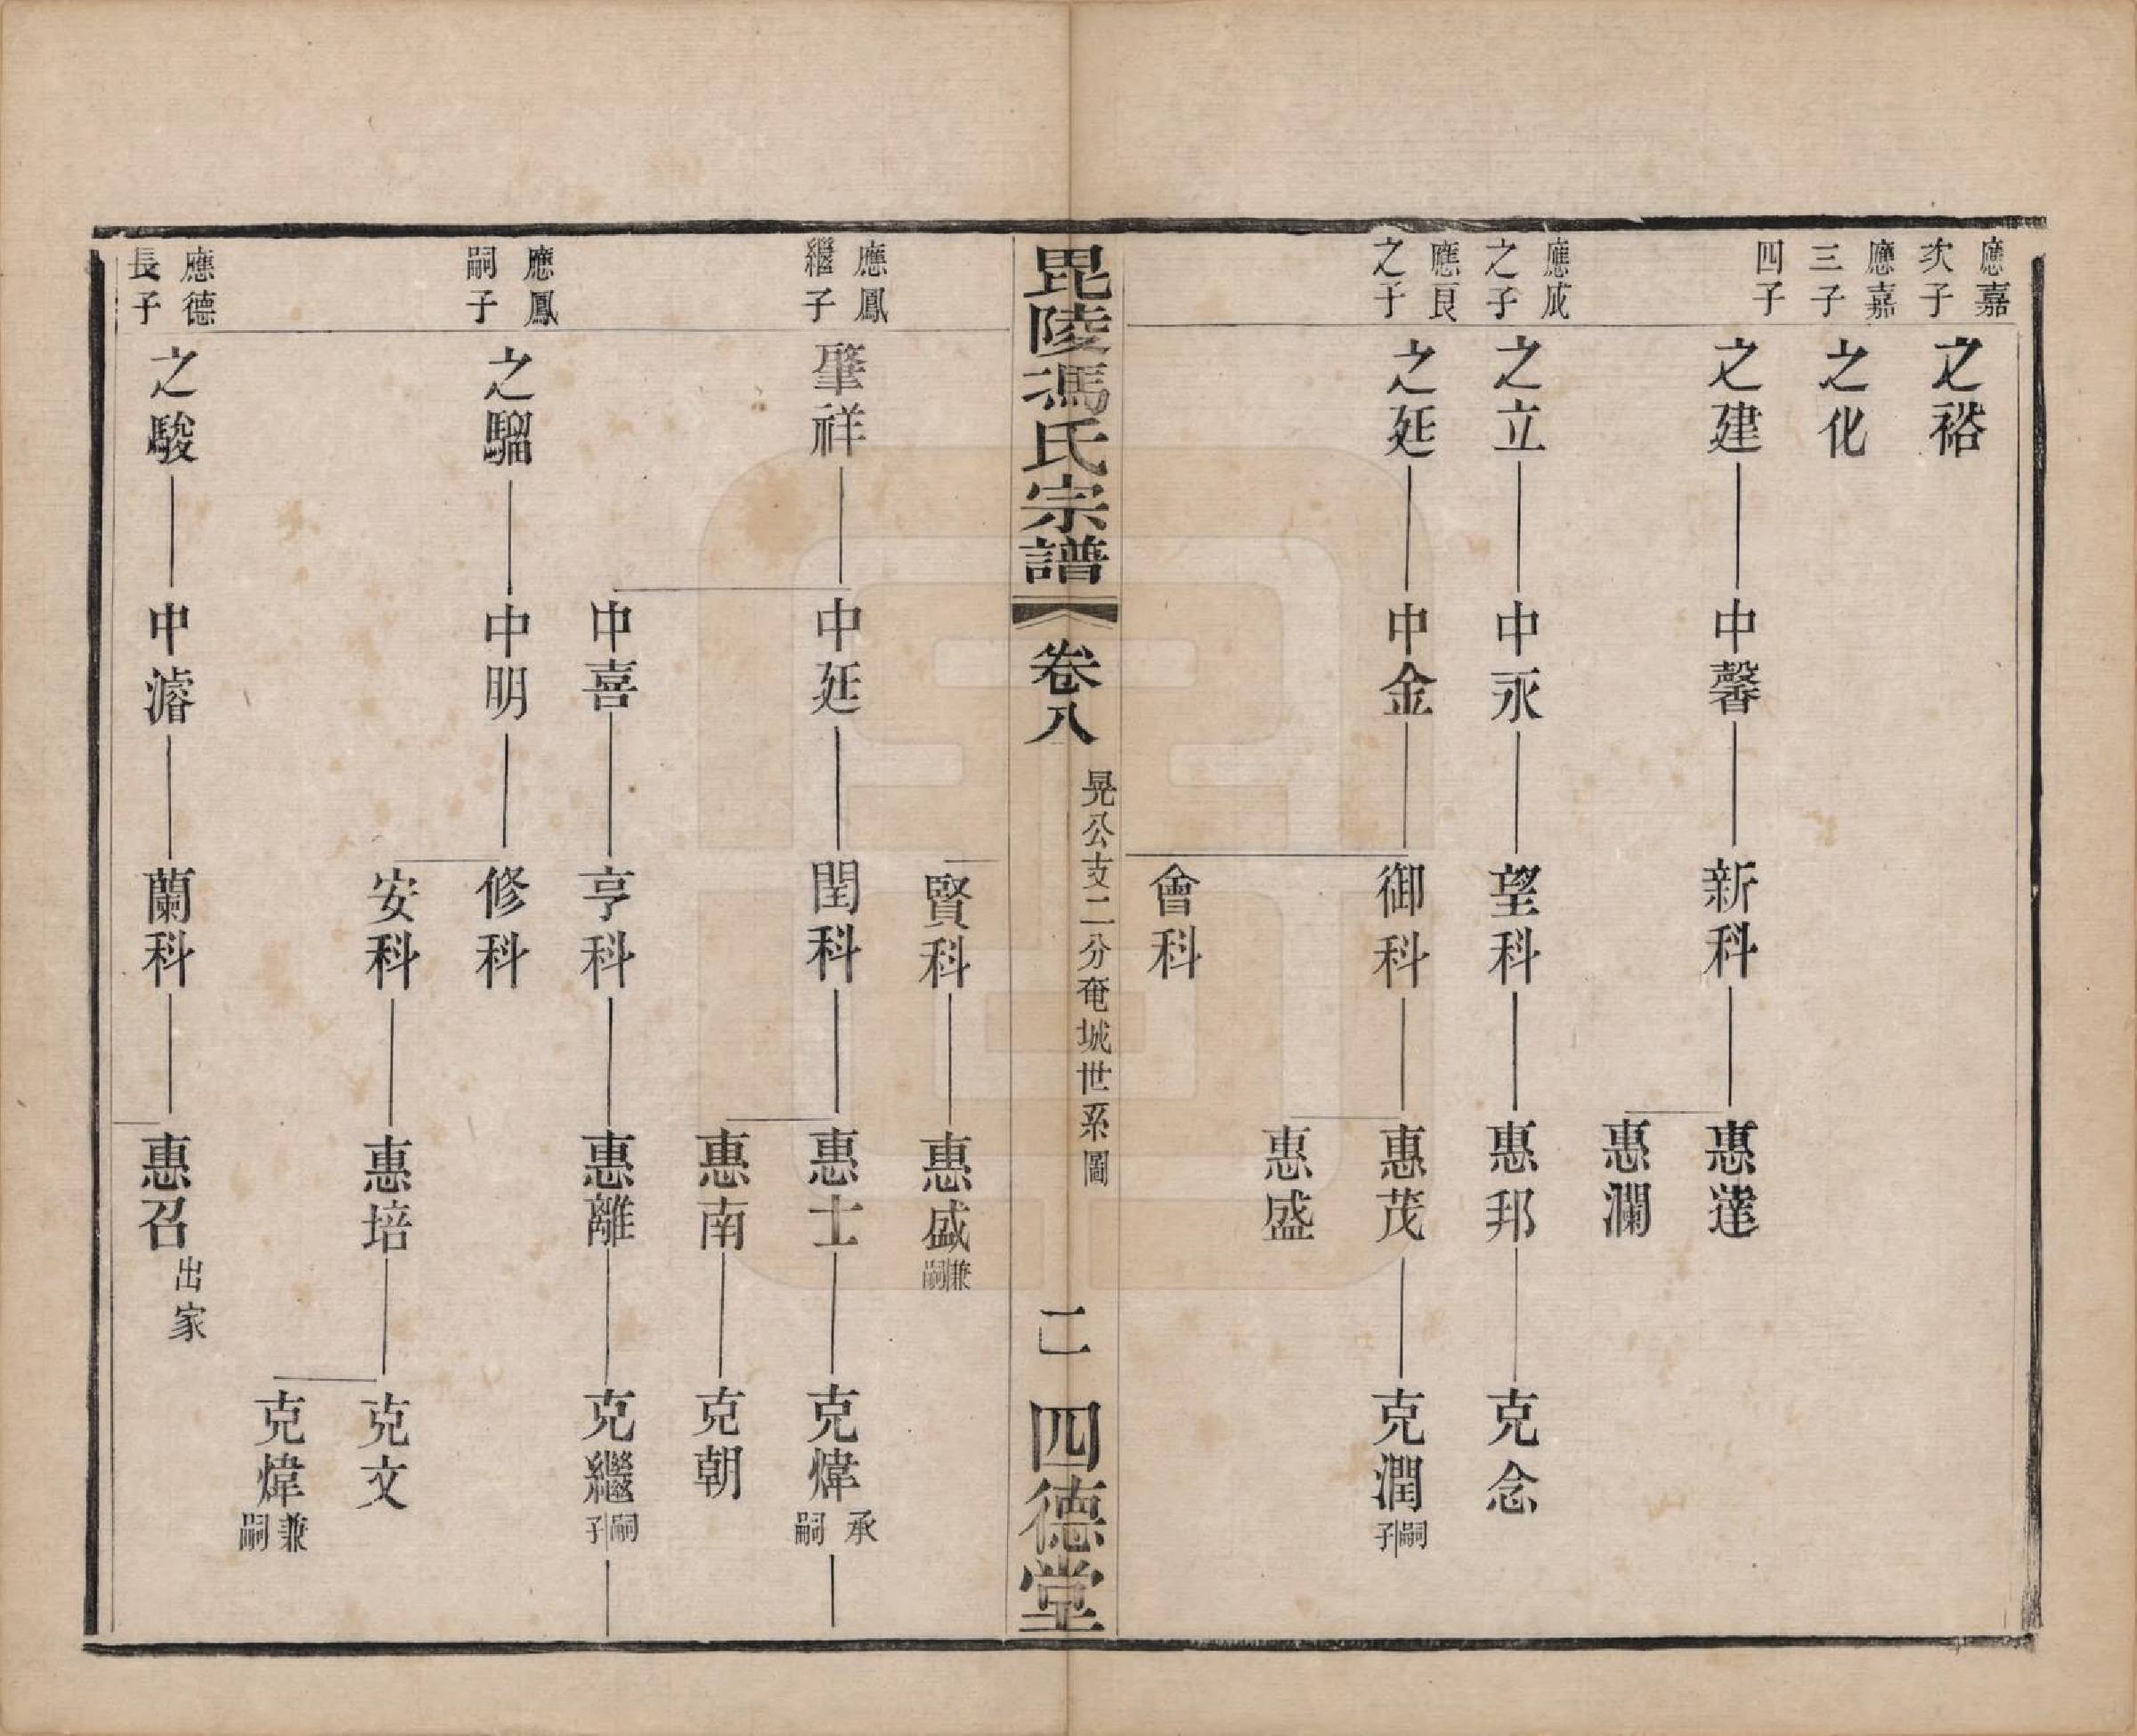 應嘉次子 之裕
應嘉三子 之化
四子 之建 中馨 新科 惠達
惠瀾
應成之子 之立 中永 望科 惠邦 克念
應良之子 之延 中金 御科 惠茂 克潤嗣子
惠盛
會科
毘陵馮氏宗譜 卷八 晃公支二分奄城世系圖 二 四德堂
賢科 惠盛兼嗣
應鳳繼子 肇祥 中延 閏科 惠士 克煒承嗣
惠南 克朝
中喜 亨科 惠離 克繼嗣子
應鳳嗣子 之騮 中明 修科
安科 惠培 克文
克煒兼嗣
應德長子 之駿 中濬 蘭科 惠召出家